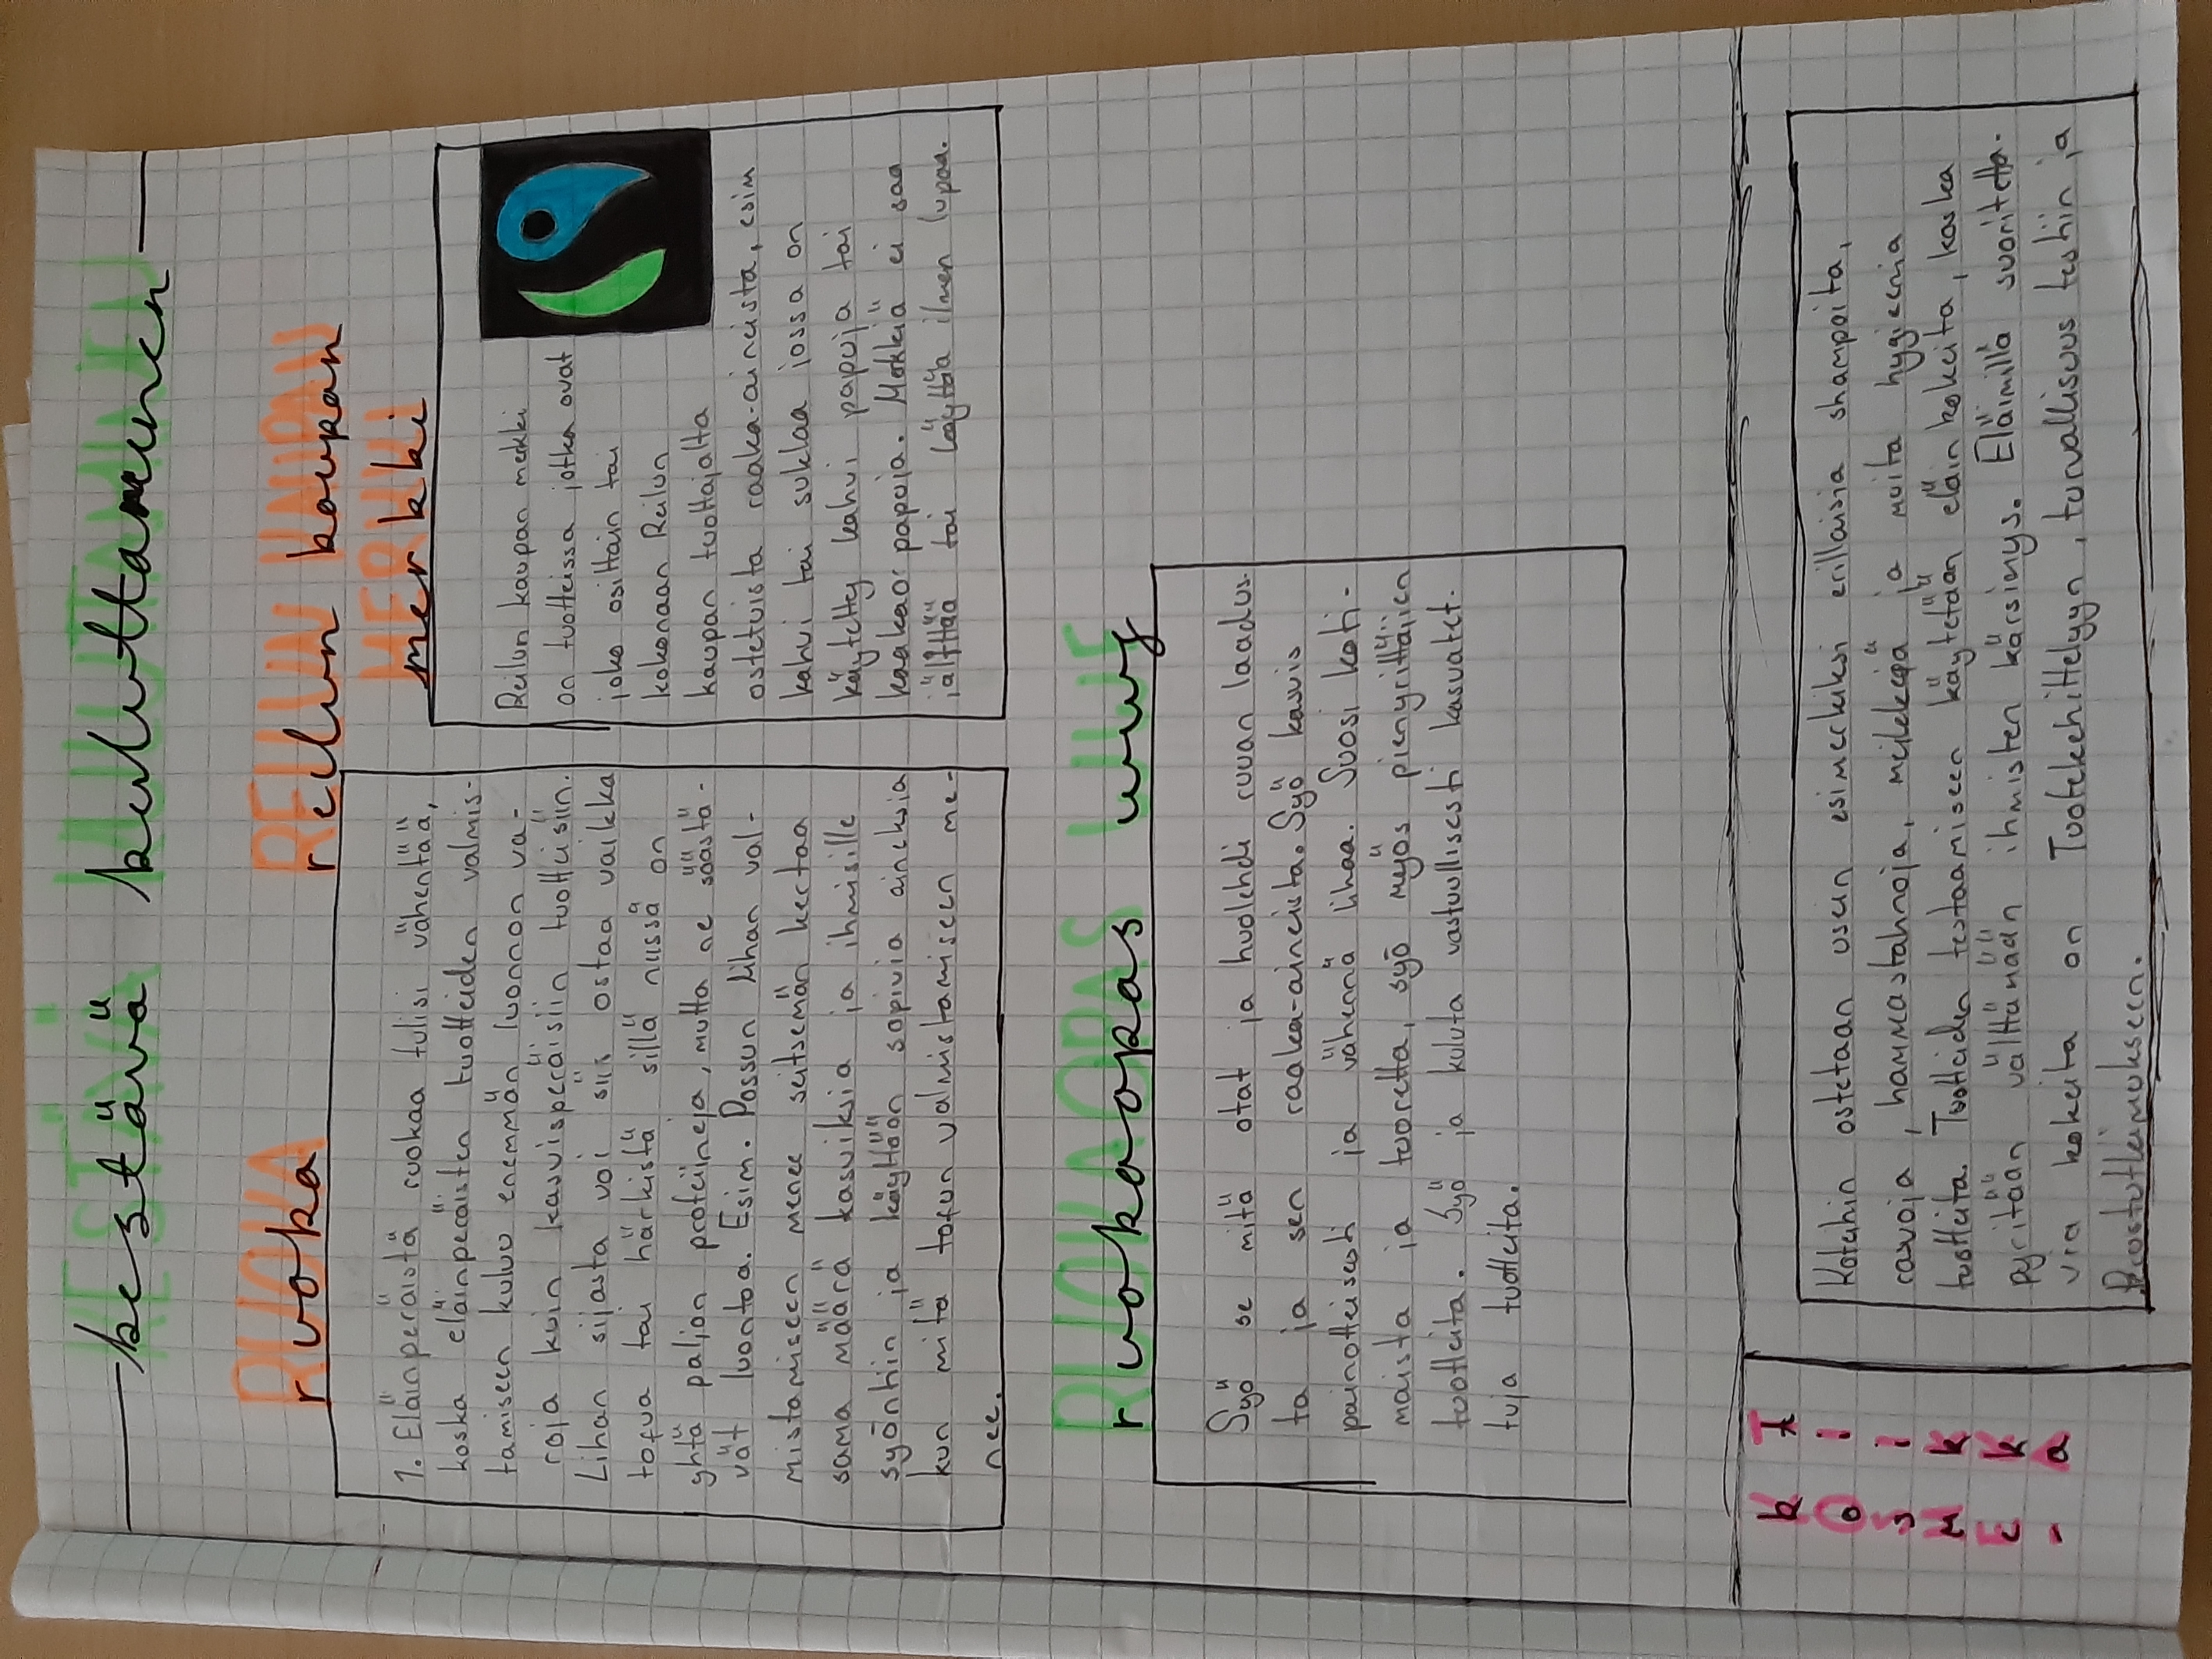 kestävä kuluttaminen
ruoka
1. Eläinperäistä ruokaa tulisi vähentää,
koska eläinperäisten tuotteiden valmis-
tamiseen kuluu enemmän luonnon va-
roja kuin kasvisperäisiin tuotteisiin.
Lihan sijasta voi siis ostaa vaikka
tofua tai härkistä sillä niissä on
yhtä paljon proteiineja, mutta ne säästä-
vät luontoa. Esim. Possun lihan val-
mistamiseen menee seitsemän kertaa
sama määrä kasviksia ja ihmisille
syöntiin ja käyttöön sopivia aineksia
kun mitä tofun valmistamiseen me-
nee.
reilun kaupan
merkki
Reilun kaupan merkki
on tuotteissa jotka ovat
joko osittain tai
kokonaan Reilun
kaupan tuottajalta
ostetuista raaka-aineista, esim
kahvi tai suklaa jossa on
käytetty kahvi papuja tai
kaakao papuja. Merkkiä ei saa
jälttää tai käyttää ilman lupaa.
ruokaopas uuf
Syö se mitä otat ja huolehdi ruuan laadus-
ta ja sen raaka-aineista. Syö kasvis
painotteisesti ja vähennä lihaa. Suosi koti-
maista ja tuoretta, syö myös pienyrittäjien
tuotteita. Syö ja kuluta vastuullisesti kasvatet-
tuja tuotteita.
KOSME-
TIIKKA
Koteihin ostetaan usein esimerkiksi erillaisia shampoita,
rasvoja, hammastahnoja, meikkejä ja muita hygieenia
tuotteita. Tuotteiden testaamiseen käytetään eläin kokeita, koska
pyritään välttämään ihmisten kärsimys. Eläimillä suoritetta-
via kokeita on Tuotekehittelyyn, turvallisuus testiin ja
Perustutkimukseen.